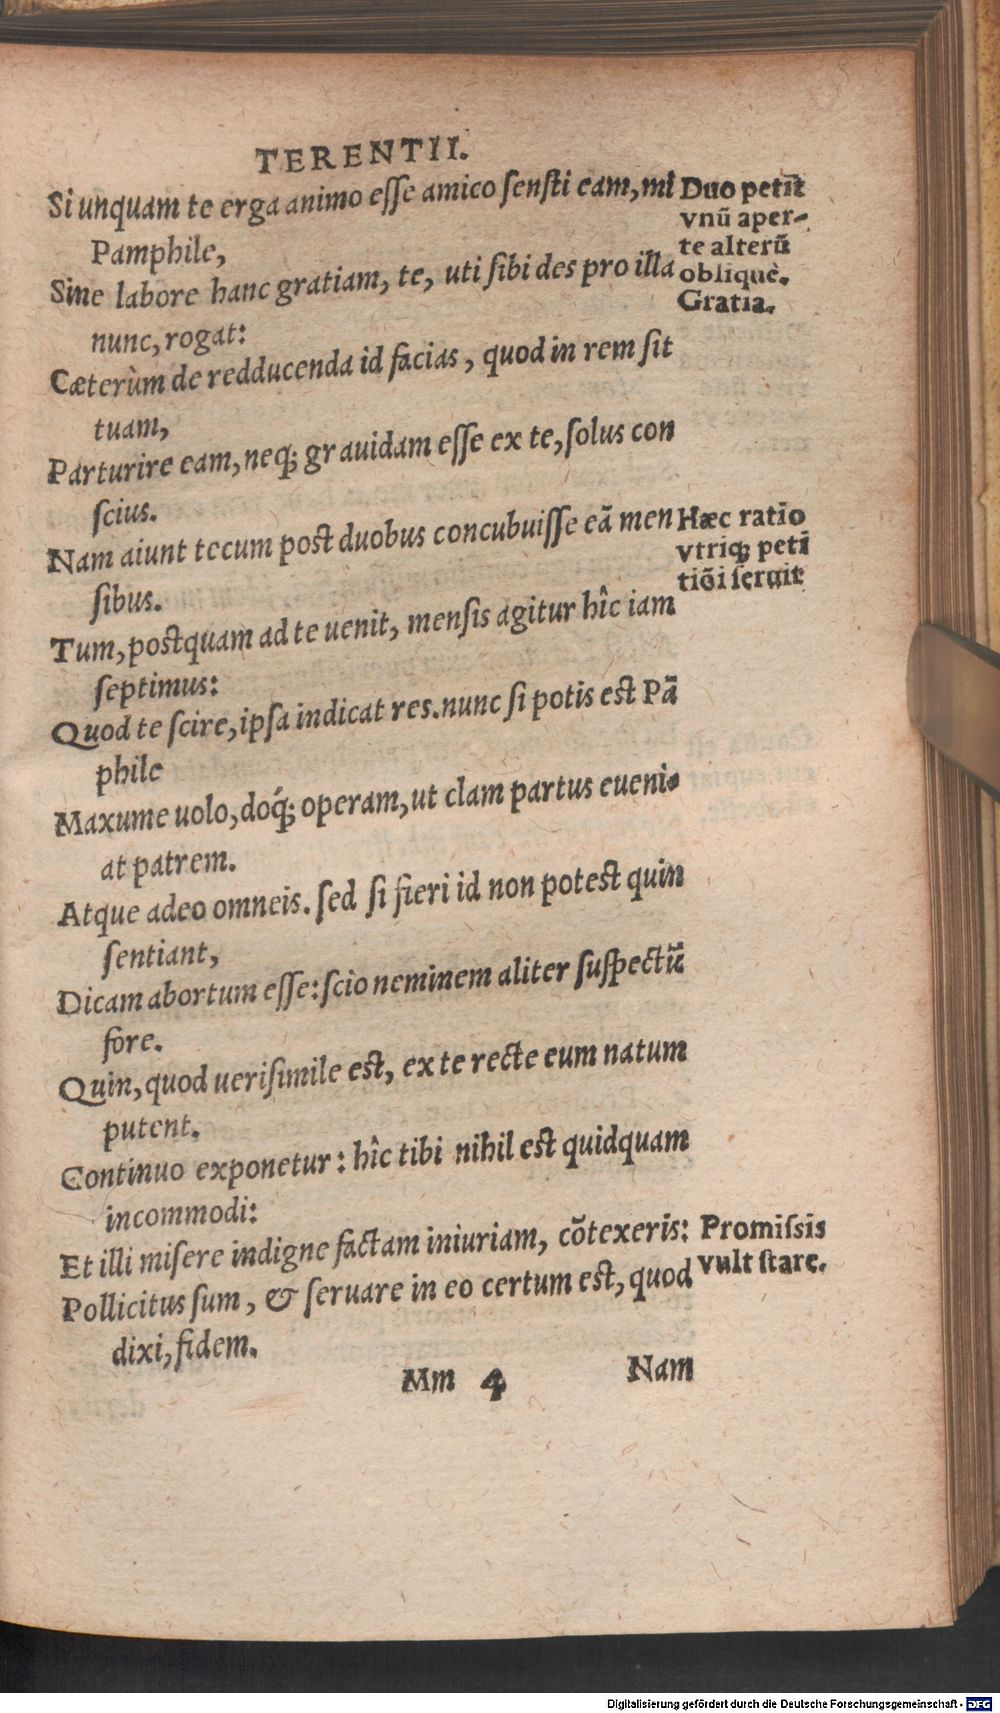 TERENTII.
Si unquam te erga animo esse amico sensti eam, mi
Pamphile,
Sine labore hanc gratiam, te, uti sibi des pro illa
nunc, rogat:
Cæterùm de redducenda id facias, quod in rem sit
tuam,
Parturire eam, neq; grauidam esse ex te, solus con
scius.
Nam aiunt tecum post duobus concubuisse eã men
sibus.
Tum, postquam ad te uenit, mensis agitur hîc iam
septimus:
Quod te scire, ipsa indicat res. nunc si potis est Pã
phile
Maxume uolo, doq́; operam, ut clam partus eueni-
at patrem.
Atque adeo omneis. sed si fieri id non potest quin
sentiant,
Dicam abortum esse: scio neminem aliter suspectũ
fore.
Quin, quod uerisimile est, ex te recte eum natum
putent.
Continuo exponetur: hîc tibi nihil est quidquam
incommodi:
Et illi misere indigne factam iniuriam, cõtexeris:
Pollicitus sum, & seruare in eo certum est, quod
dixi, fidem.
Mm 4 Nam
Duo petit
vnũ aper-
te alterũ
obliquè.
Gratia.
Hæc ratio
vtriq; peti
tiõi seruit
Promissis
vult stare.
Digitalisierung gefördert durch die Deutsche Forschungsgemeinschaft - DFG